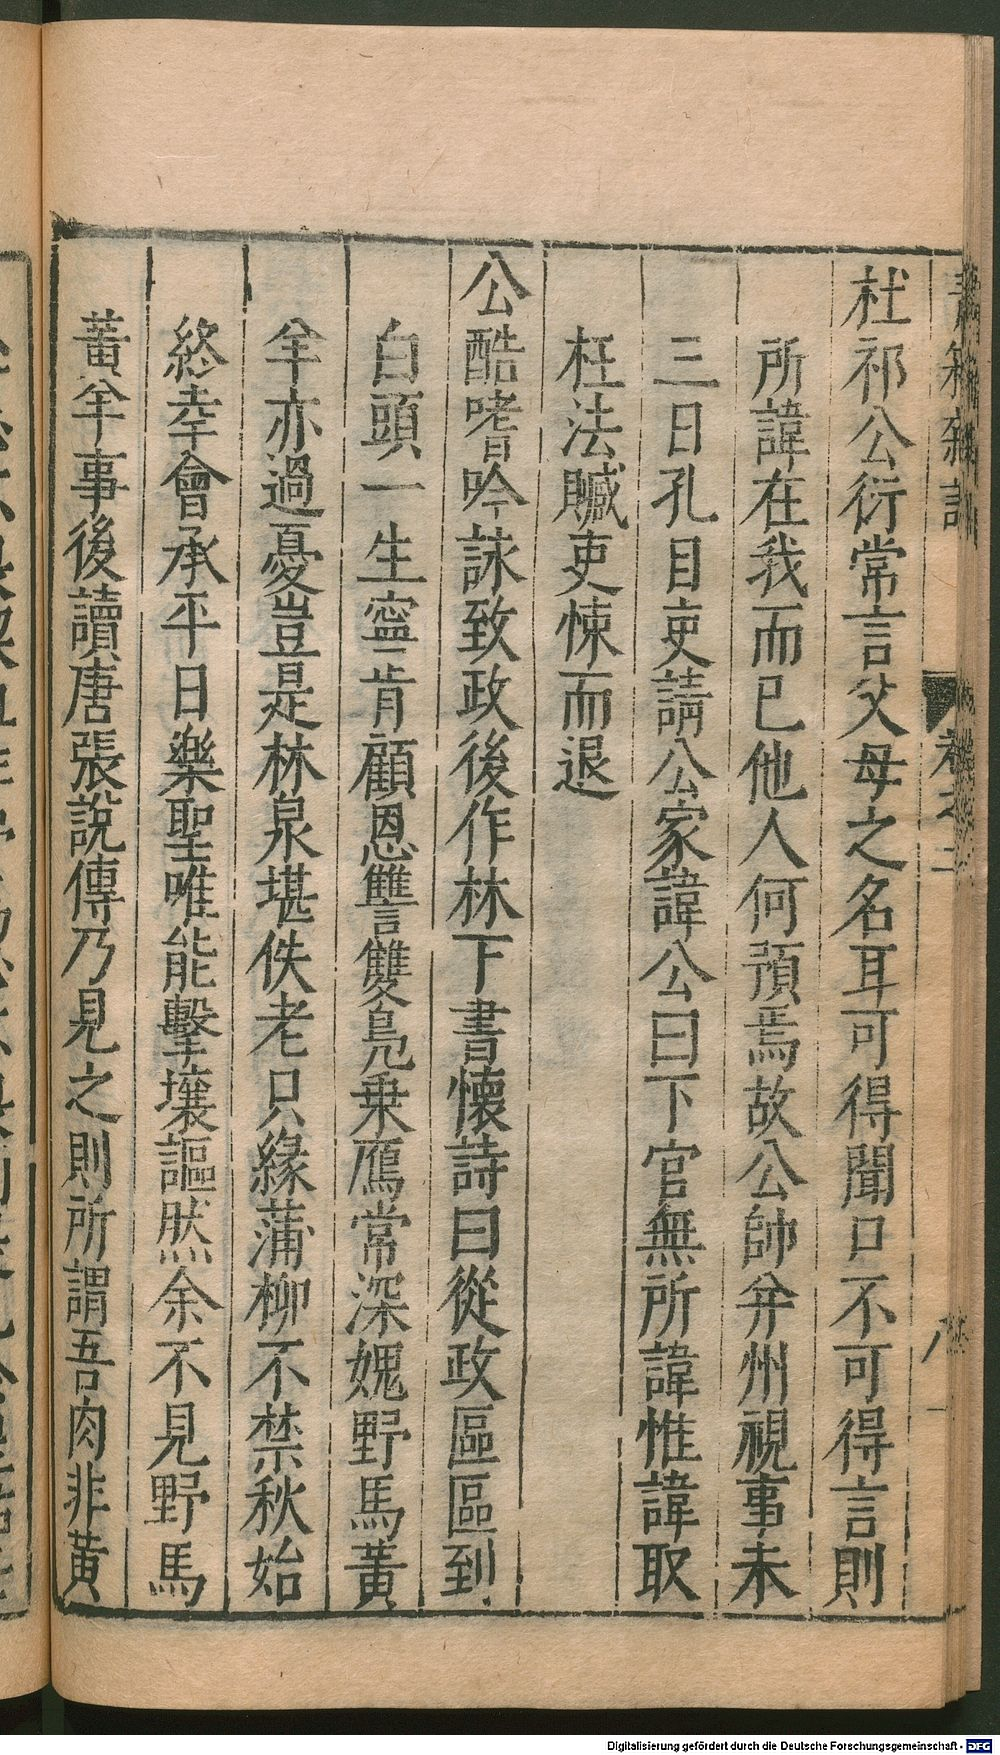 青箱雜記
卷之二
杜祁公衍常言父母之名耳可得聞口不可得言則
所諱在我而已他人何預焉故公帥并州視事未
三日孔目吏請公家諱公曰下官無所諱惟諱取
枉法贓吏悚而退
公酷嗜吟詠致政後作林下書懷詩曰從政區區到
白頭一生寧肯顧恩讐雙鳧乗鴈常深媿野馬黃
羊亦過憂豈是林泉堪佚老只緣蒲柳不禁秋始
終幸會承平日樂聖唯能擊壤謳然余不見野馬
黃羊事後讀唐張說傳乃見之則所謂吾肉非黃
Digitalisierung gefördert durch die Deutsche Forschungsgemeinschaft - DFG